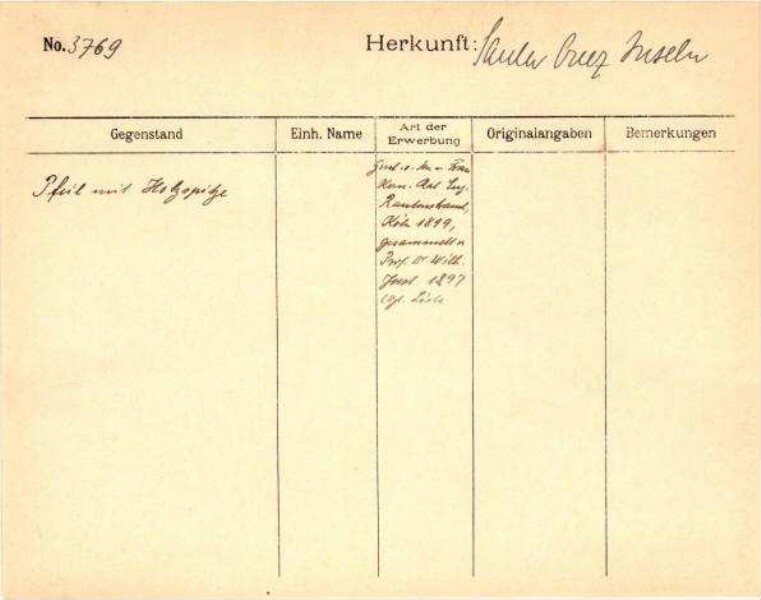 No. 3769 Herkunft: Santa Cruz Inseln
Gegenstand Einh. Name Art der Erwerbung Originalangaben Bemerkungen
Pfeil mit Holzspitze
Frau
Eug.
Rautenstrauch,
Köln 1899,
gesammelt v.
Prof. Dr Wilh.
Joest 1897
vgl. Liste